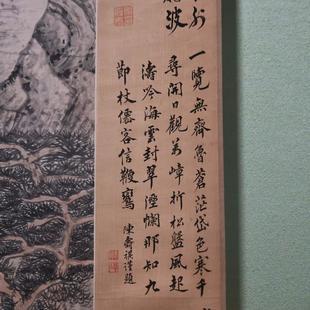 一覽無齊魯蒼茫岱色寒千
尋開日觀萬嶂折松盤風起
濤吟海雲封翠溼斕那知九
節杖僊客信驂鸞
陳壽祺謹題